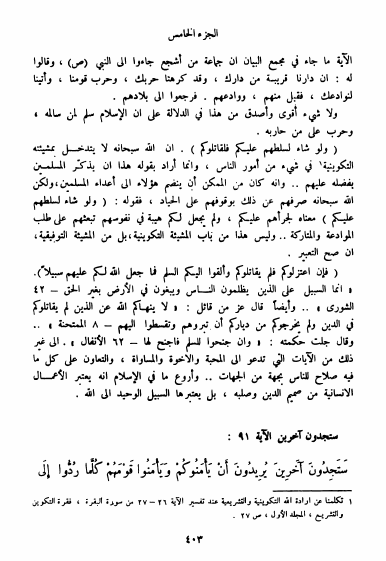 الجزء الخامس
الآية ما جاء في مجمع البيان ان جماعة من أشجع جاءوا الى النبي (ص) ، وقالوا
له : ان دارنا قريبة من دارك ، وقد كرهنا حربك ، وحرب قومنا ، وأتينا
لنوادعك ، فقبل منهم ، ووادعهم . فرجعوا الى بلادهم .
ولا شيء أقوى وأصدق من هذا في الدلالة على ان الإسلام سلم لمن سالمه ،
وحرب على من حاربه .
( ولو شاء لسلطهم عليكم فلقاتلوكم ) . ان الله سبحانه لا يتدخل بمشيئته
التكوينية١ في شيء من أمور الناس ، وانما أراد بقوله هذا ان يذكّر المسلمين
بفضله عليهم .. وانه كان من الممكن أن ينضم هؤلاء الى أعداء المسلمين،ولكن
الله سبحانه صرفهم عن ذلك بوقوفهم على الحياد ، فقوله : ( ولو شاء لسلطهم
عليكم ) معناه لجرأهم عليكم ، ولم يجعل لكم هيبة في نفوسهم تبعثهم على طلب
الموادعة والمتاركة .. وليس هذا من باب المشيئة التكوينية،بل من المشيئة التوفيقية،
ان صح التعبير .
( فإن اعتزلوكم فلم يقاتلوكم وألقوا اليكم السلم فما جعل الله لكم عليهم سبيلاً ).
« انما السبيل على الذين يظلمون الناس ويبغون في الأرض بغير الحق – ٤٢
الشورى » .. وأيضاً قال عز من قائل : « لا ينهاكم الله عن الذين لم يقاتلوكم
في الدين ولم يخرجوكم من دياركم أن تبروهم وتقسطوا اليهم – ٨ الممتحنة » ..
وقال جلت حكمته : « وان جنحوا للسلم فاجنح لها – ٦٢ الأنفال » . الى غير
ذلك من الآيات التي تدعو الى المحبة والأخوة والمساواة ، والتعاون على كل ما
فيه صلاح للناس بجهة من الجهات .. وأروع ما في الإسلام انه يعتبر الأعمال
الانسانية من صميم الدين وصلبه ، بل يعتبرها السبيل الوحيد الى الله .
ستجدون آخرين الآية ٩١ :
سَتَجِدُونَ آخَرِينَ يُرِيدُونَ أَنْ يَأْمَنُوكُمْ وَيَأْمَنُوا قَوْمَهُمْ كُلَّمَا رُدُّوا إِلَى
١ تكلمنا عن ارادة الله التكوينية والتشريعية عند تفسير الآية ٢٦ – ٢٧ من سورة البقرة ، فقرة التكوين
والتشريع ، المجلد الأول ، ص ٢٧ .
٤٠٣